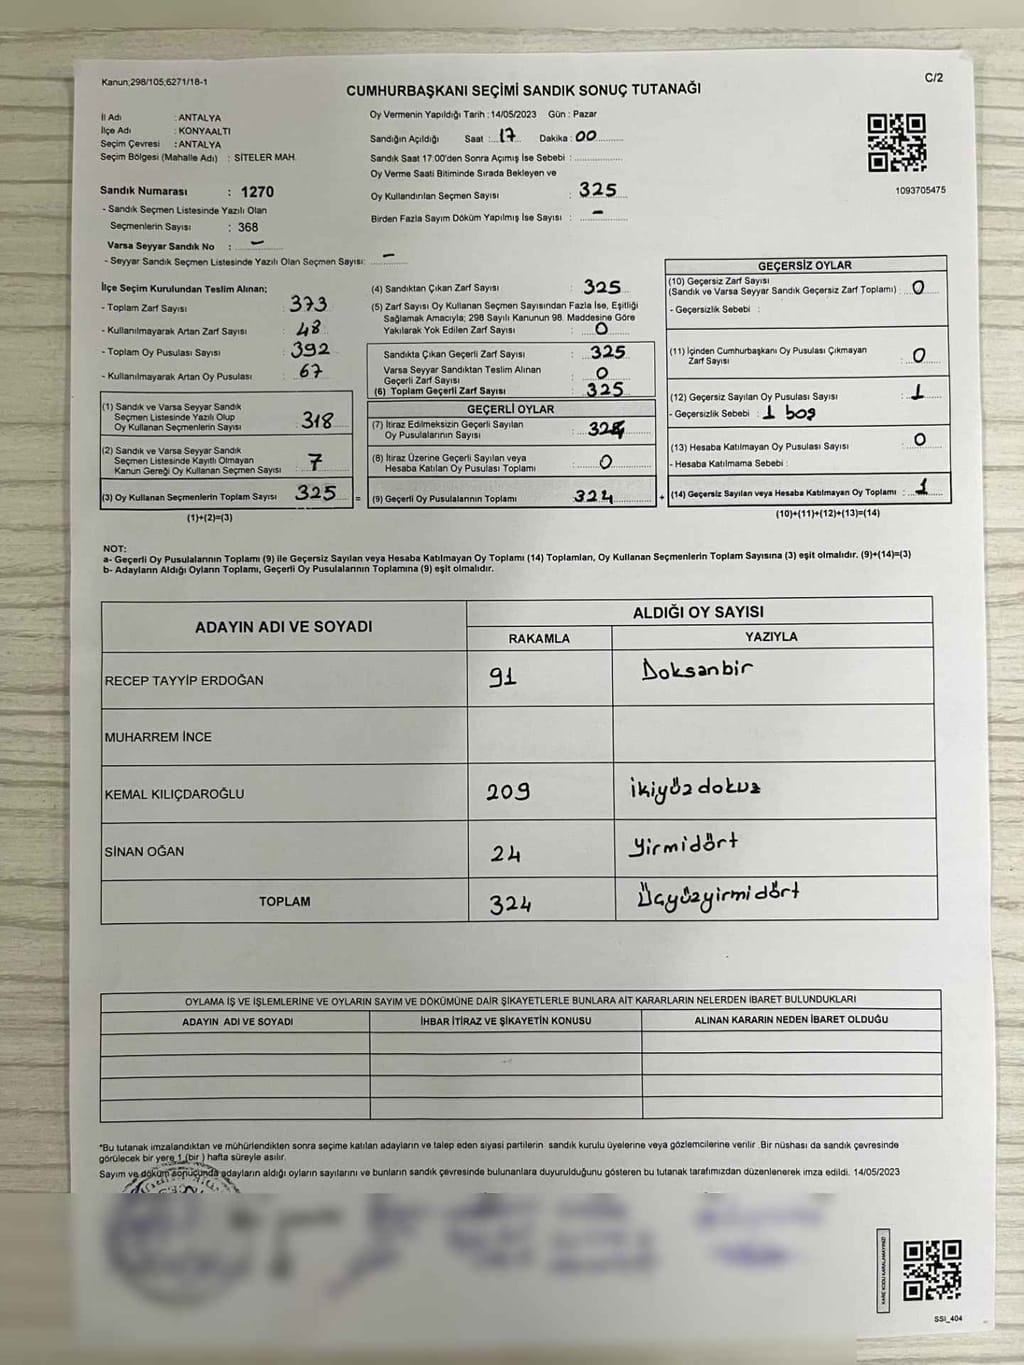 Kanun;298/105;6271/18-1
C/2
CUMHURBAŞKANI SEÇİMİ SANDIK SONUÇ TUTANAĞI
İl Adı : ANTALYA
İlçe Adı : KONYAALTI
Seçim Çevresi : ANTALYA
Seçim Bölgesi (Mahalle Adı) : SİTELER MAH.
Sandık Numarası : 1270
- Sandık Seçmen Listesinde Yazılı Olan
Seçmenlerin Sayısı : 368
Varsa Seyyar Sandık No : –
- Seyyar Sandık Seçmen Listesinde Yazılı Olan Seçmen Sayısı: –
Oy Vermenin Yapıldığı Tarih : 14/05/2023 Gün : Pazar
Sandığın Açıldığı Saat : 17 Dakika : 00
Sandık Saat 17:00'den Sonra Açımış İse Sebebi :
Oy Verme Saati Bitiminde Sırada Bekleyen ve
Oy Kullandırılan Seçmen Sayısı : 325
Birden Fazla Sayım Döküm Yapılmış İse Sayısı : –
1093705475
İlçe Seçim Kurulundan Teslim Alınan;
- Toplam Zarf Sayısı : 373
- Kullanılmayarak Artan Zarf Sayısı : 48
- Toplam Oy Pusulası Sayısı : 392
- Kullanılmayarak Artan Oy Pusulası : 67
(1) Sandık ve Varsa Seyyar Sandık
Seçmen Listesinde Yazılı Olup
Oy Kullanan Seçmenlerin Sayısı : 318
(2) Sandık ve Varsa Seyyar Sandık
Seçmen Listesinde Kayıtlı Olmayan
Kanun Gereği Oy Kullanan Seçmen Sayısı : 7
(3) Oy Kullanan Seçmenlerin Toplam Sayısı : 325 =
(1)+(2)=(3)
(4) Sandıktan Çıkan Zarf Sayısı : 325
(5) Zarf Sayısı Oy Kullanan Seçmen Sayısından Fazla İse, Eşitliği
Sağlamak Amacıyla; 298 Sayılı Kanunun 98. Maddesine Göre
Yakılarak Yok Edilen Zarf Sayısı : 0
Sandıkta Çıkan Geçerli Zarf Sayısı : 325
Varsa Seyyar Sandıktan Teslim Alınan
Geçerli Zarf Sayısı : 0
(6) Toplam Geçerli Zarf Sayısı : 325
GEÇERLİ OYLAR
(7) İtiraz Edilmeksizin Geçerli Sayılan
Oy Pusulalarının Sayısı : 324
(8) İtiraz Üzerine Geçerli Sayılan veya
Hesaba Katılan Oy Pusulası Toplamı : 0
(9) Geçerli Oy Pusulalarının Toplamı : 324 +
GEÇERSİZ OYLAR
(10) Geçersiz Zarf Sayısı
(Sandık ve Varsa Seyyar Sandık Geçersiz Zarf Toplamı) : 0
- Geçersizlik Sebebi :
(11) İçinden Cumhurbaşkanı Oy Pusulası Çıkmayan
Zarf Sayısı : 0
(12) Geçersiz Sayılan Oy Pusulası Sayısı : 1
- Geçersizlik Sebebi : 1 boş
(13) Hesaba Katılmayan Oy Pusulası Sayısı : 0
- Hesaba Katılmama Sebebi :
(14) Geçersiz Sayılan veya Hesaba Katılmayan Oy Toplamı : 1
(10)+(11)+(12)+(13)=(14)
NOT:
a- Geçerli Oy Pusulalarının Toplamı (9) ile Geçersiz Sayılan veya Hesaba Katılmayan Oy Toplamı (14) Toplamları, Oy Kullanan Seçmenlerin Toplam Sayısına (3) eşit olmalıdır. (9)+(14)=(3)
b- Adayların Aldığı Oyların Toplamı, Geçerli Oy Pusulalarının Toplamına (9) eşit olmalıdır.
ADAYIN ADI VE SOYADI
ALDIĞI OY SAYISI
RAKAMLA YAZIYLA
RECEP TAYYİP ERDOĞAN 91 Doksanbir
MUHARREM İNCE
KEMAL KILIÇDAROĞLU 209 ikiyüzdokuz
SİNAN OĞAN 24 yirmidört
TOPLAM 324 Üçyüzyirmidört
OYLAMA İŞ VE İŞLEMLERİNE VE OYLARIN SAYIM VE DÖKÜMÜNE DAİR ŞİKAYETLERLE BUNLARA AİT KARARLARIN NELERDEN İBARET BULUNDUKLARI
ADAYIN ADI VE SOYADI İHBAR İTİRAZ VE ŞİKAYETİN KONUSU ALINAN KARARIN NEDEN İBARET OLDUĞU
*Bu tutanak imzalandıktan ve mühürlendikten sonra seçime katılan adayların ve talep eden siyasi partilerin sandık kurulu üyelerine veya gözlemcilerine verilir .Bir nüshası da sandık çevresinde
görülecek bir yere 1 (bir ) hafta süreyle asılır.
Sayım ve döküm sonucunda adayların aldığı oyların sayılarını ve bunların sandık çevresinde bulunanlara duyurulduğunu gösteren bu tutanak tarafımızdan düzenlenerek imza edildi. 14/05/2023
KARE KODU KARALAMAYINIZ!
SSI_404